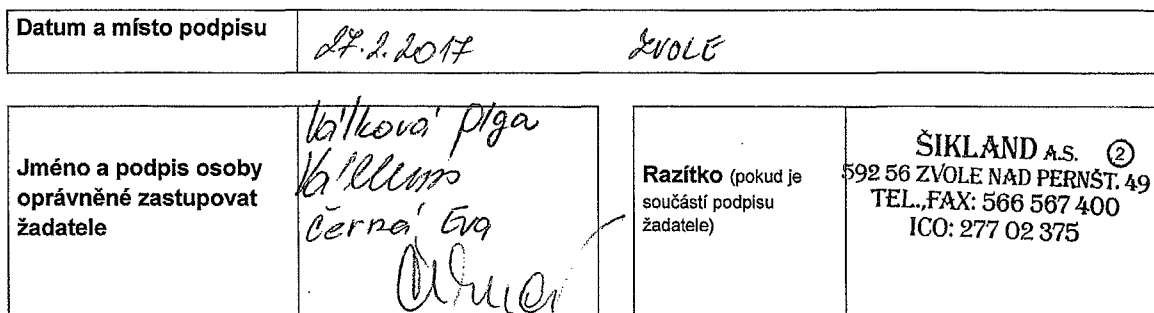 Datum a místo podpisu
27.2.2017 ZVOLE
Jméno a podpis osoby
oprávněné zastupovat
žadatele
Válková Olga
Válková
Černá Eva
Černá
Razítko (pokud je
součástí podpisu
žadatele)
ŠIKLAND A.S. 2
592 56 ZVOLE NAD PERNŠT. 49
TEL.,FAX: 566 567 400
ICO: 277 02 375